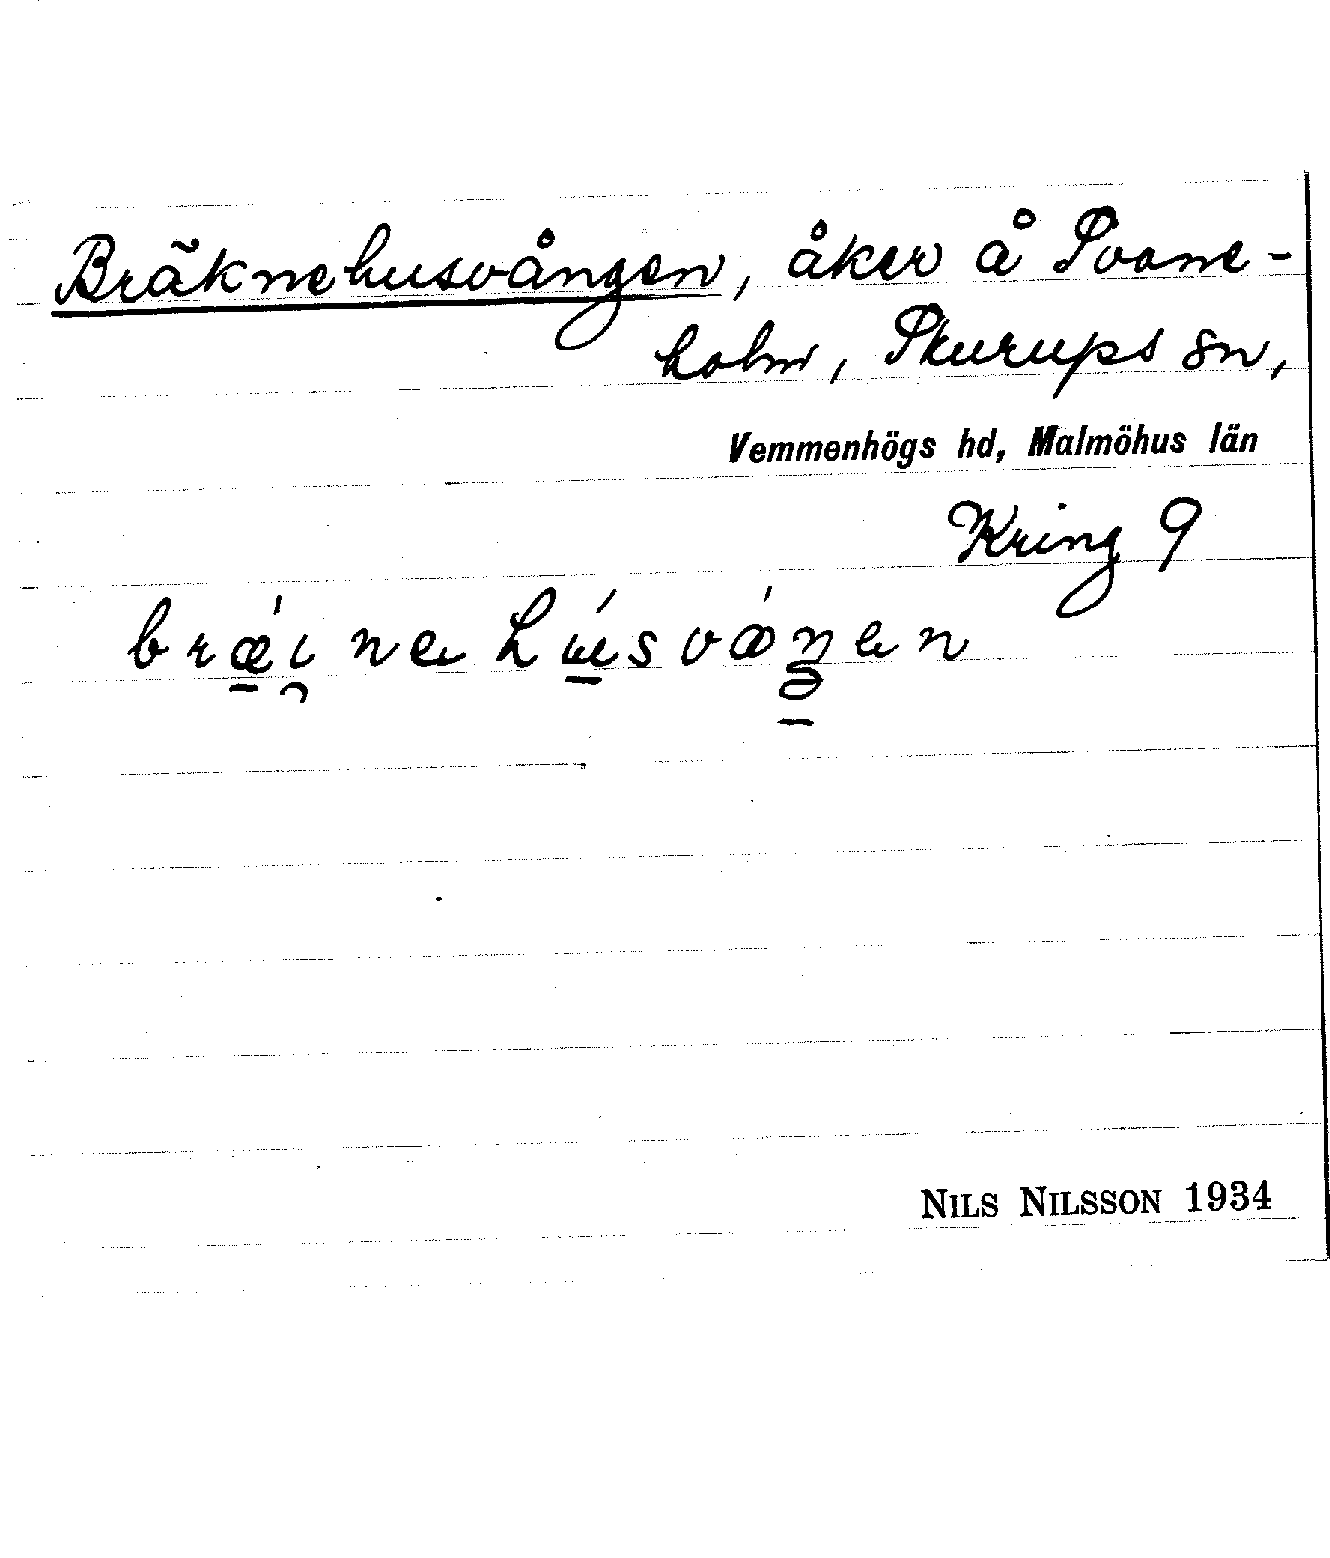 Bräknehusvången, åker å Svane-
holm, Skurups sn,
Vemmenhögs hd, Malmöhus län
Kring 9
NILS NILSSON 1934